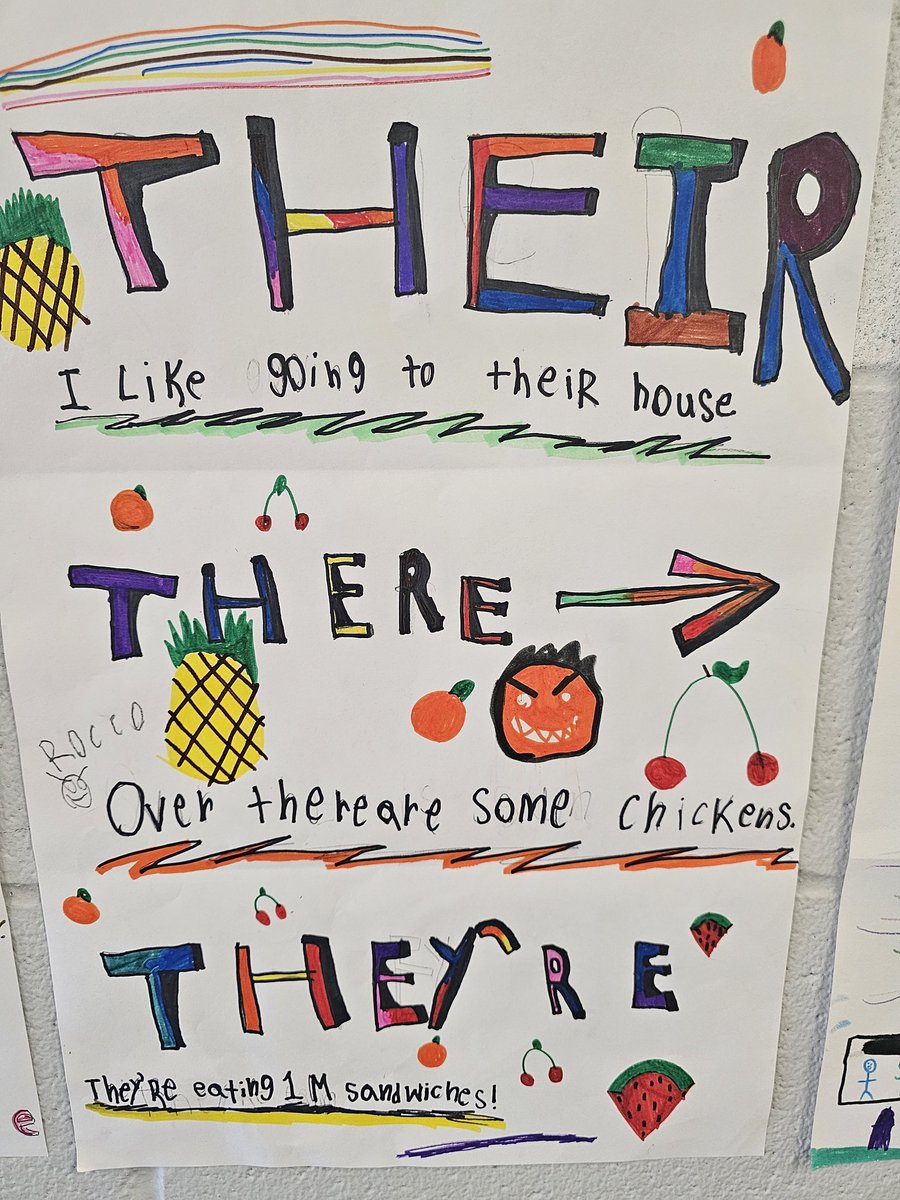 THEIR
I Like going to theiR house
THERE
@ROCCO
Over thereare some chickens.
THEY'RE
They'Re eating 1 M sandwiches!
e